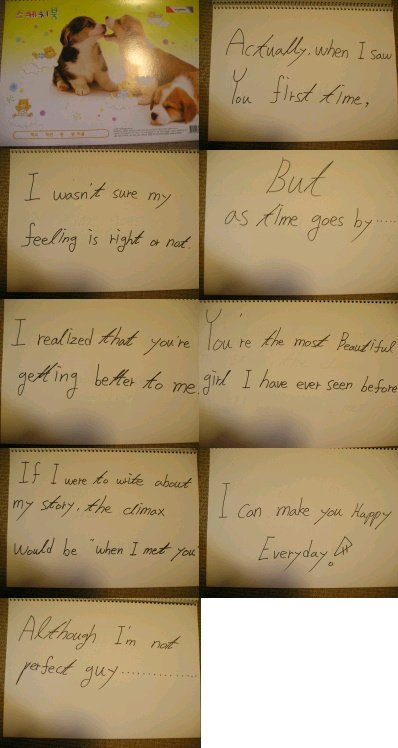 스케치북
Actually, when I saw
You first time,
I wasn't sure my
feeling is right or not.
But
as time goes by.....
I realized that you're
getting better to me.
You're the most Beautiful
girl I have ever seen before
If I were to write about
my story, the climax
would be "when I met you"
I can make you Happy
Everyday!
Although I'm not
perfect guy..............